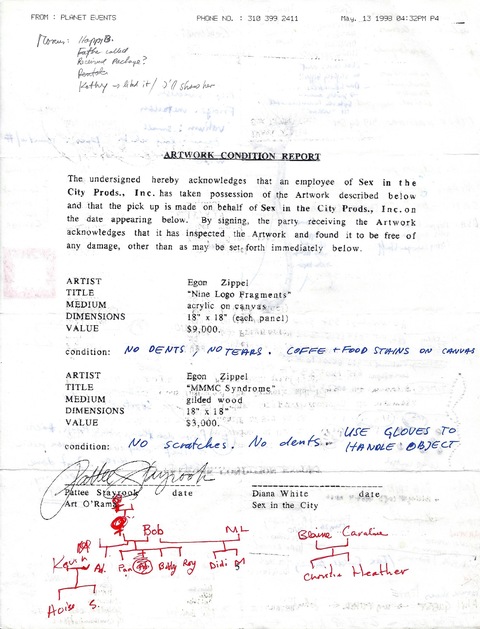 FROM : PLANET EVENTS PHONE NO. : 310 399 2411 May. 13 1998 04:32PM P4
Happy B.
called
Received Package?
Kathy
ARTWORK CONDITION REPORT
The undersigned hereby acknowledges that an employee of Sex in the
City Prods., Inc. has taken possession of the Artwork described below
and that the pick up is made on behalf of Sex in the City Prods., Inc. on
the date appearing below. By signing, the party receiving the Artwork
acknowledges that it has inspected the Artwork and found it to be free of
any damage, other than as may be set forth immediately below.
ARTIST Egon Zippel
TITLE "Nine Logo Fragments"
MEDIUM acrylic on canvas
DIMENSIONS 18" x 18" (each panel)
VALUE $9,000.
condition: NO DENTS, NO TEARS. COFFE + FOOD STAINS ON CANVAS
ARTIST Egon Zippel
TITLE "MMMC Syndrome"
MEDIUM gilded wood
DIMENSIONS 18" x 18"
VALUE $3,000.
condition: No scratches. No dents. USE GLOVES TO
HANDLE OBJECT
Pattee Stayrook
Pattee Stayrook date Diana White date
Art O'Rama Sex in the City
Bob ML Blaine Caroline
Kevin Ad. Pam Bobby Ray Didi Christia Heather
S.